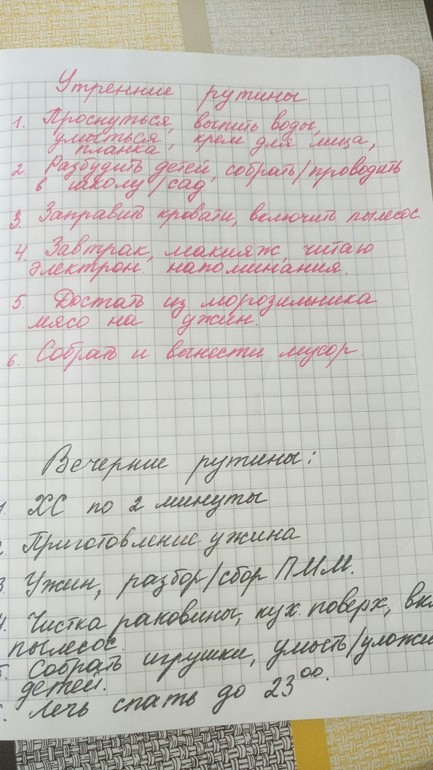 Утренние рутины
1. Проснуться, выпить воды,
умыться, крем для лица,
планка
2 Разбудить детей, собрать/проводить
в школу/сад
3. Заправить кровати, включить пылесос
4. Завтрак, макияж, читаю
электрон. напоминания.
5. Достать из морозильника
мясо на ужин.
6. Собрать и вынести мусор.
Вечерние рутины:
1. ХС по 2 минуты
2 Приготовление ужина
3. Ужин, разбор/сбор ПММ.
4. Чистка раковины, кух. поверх, вкл
пылесос.
5. Собрать игрушки, умыть/уложи
детей.
Лечь спать до 23⁰⁰.